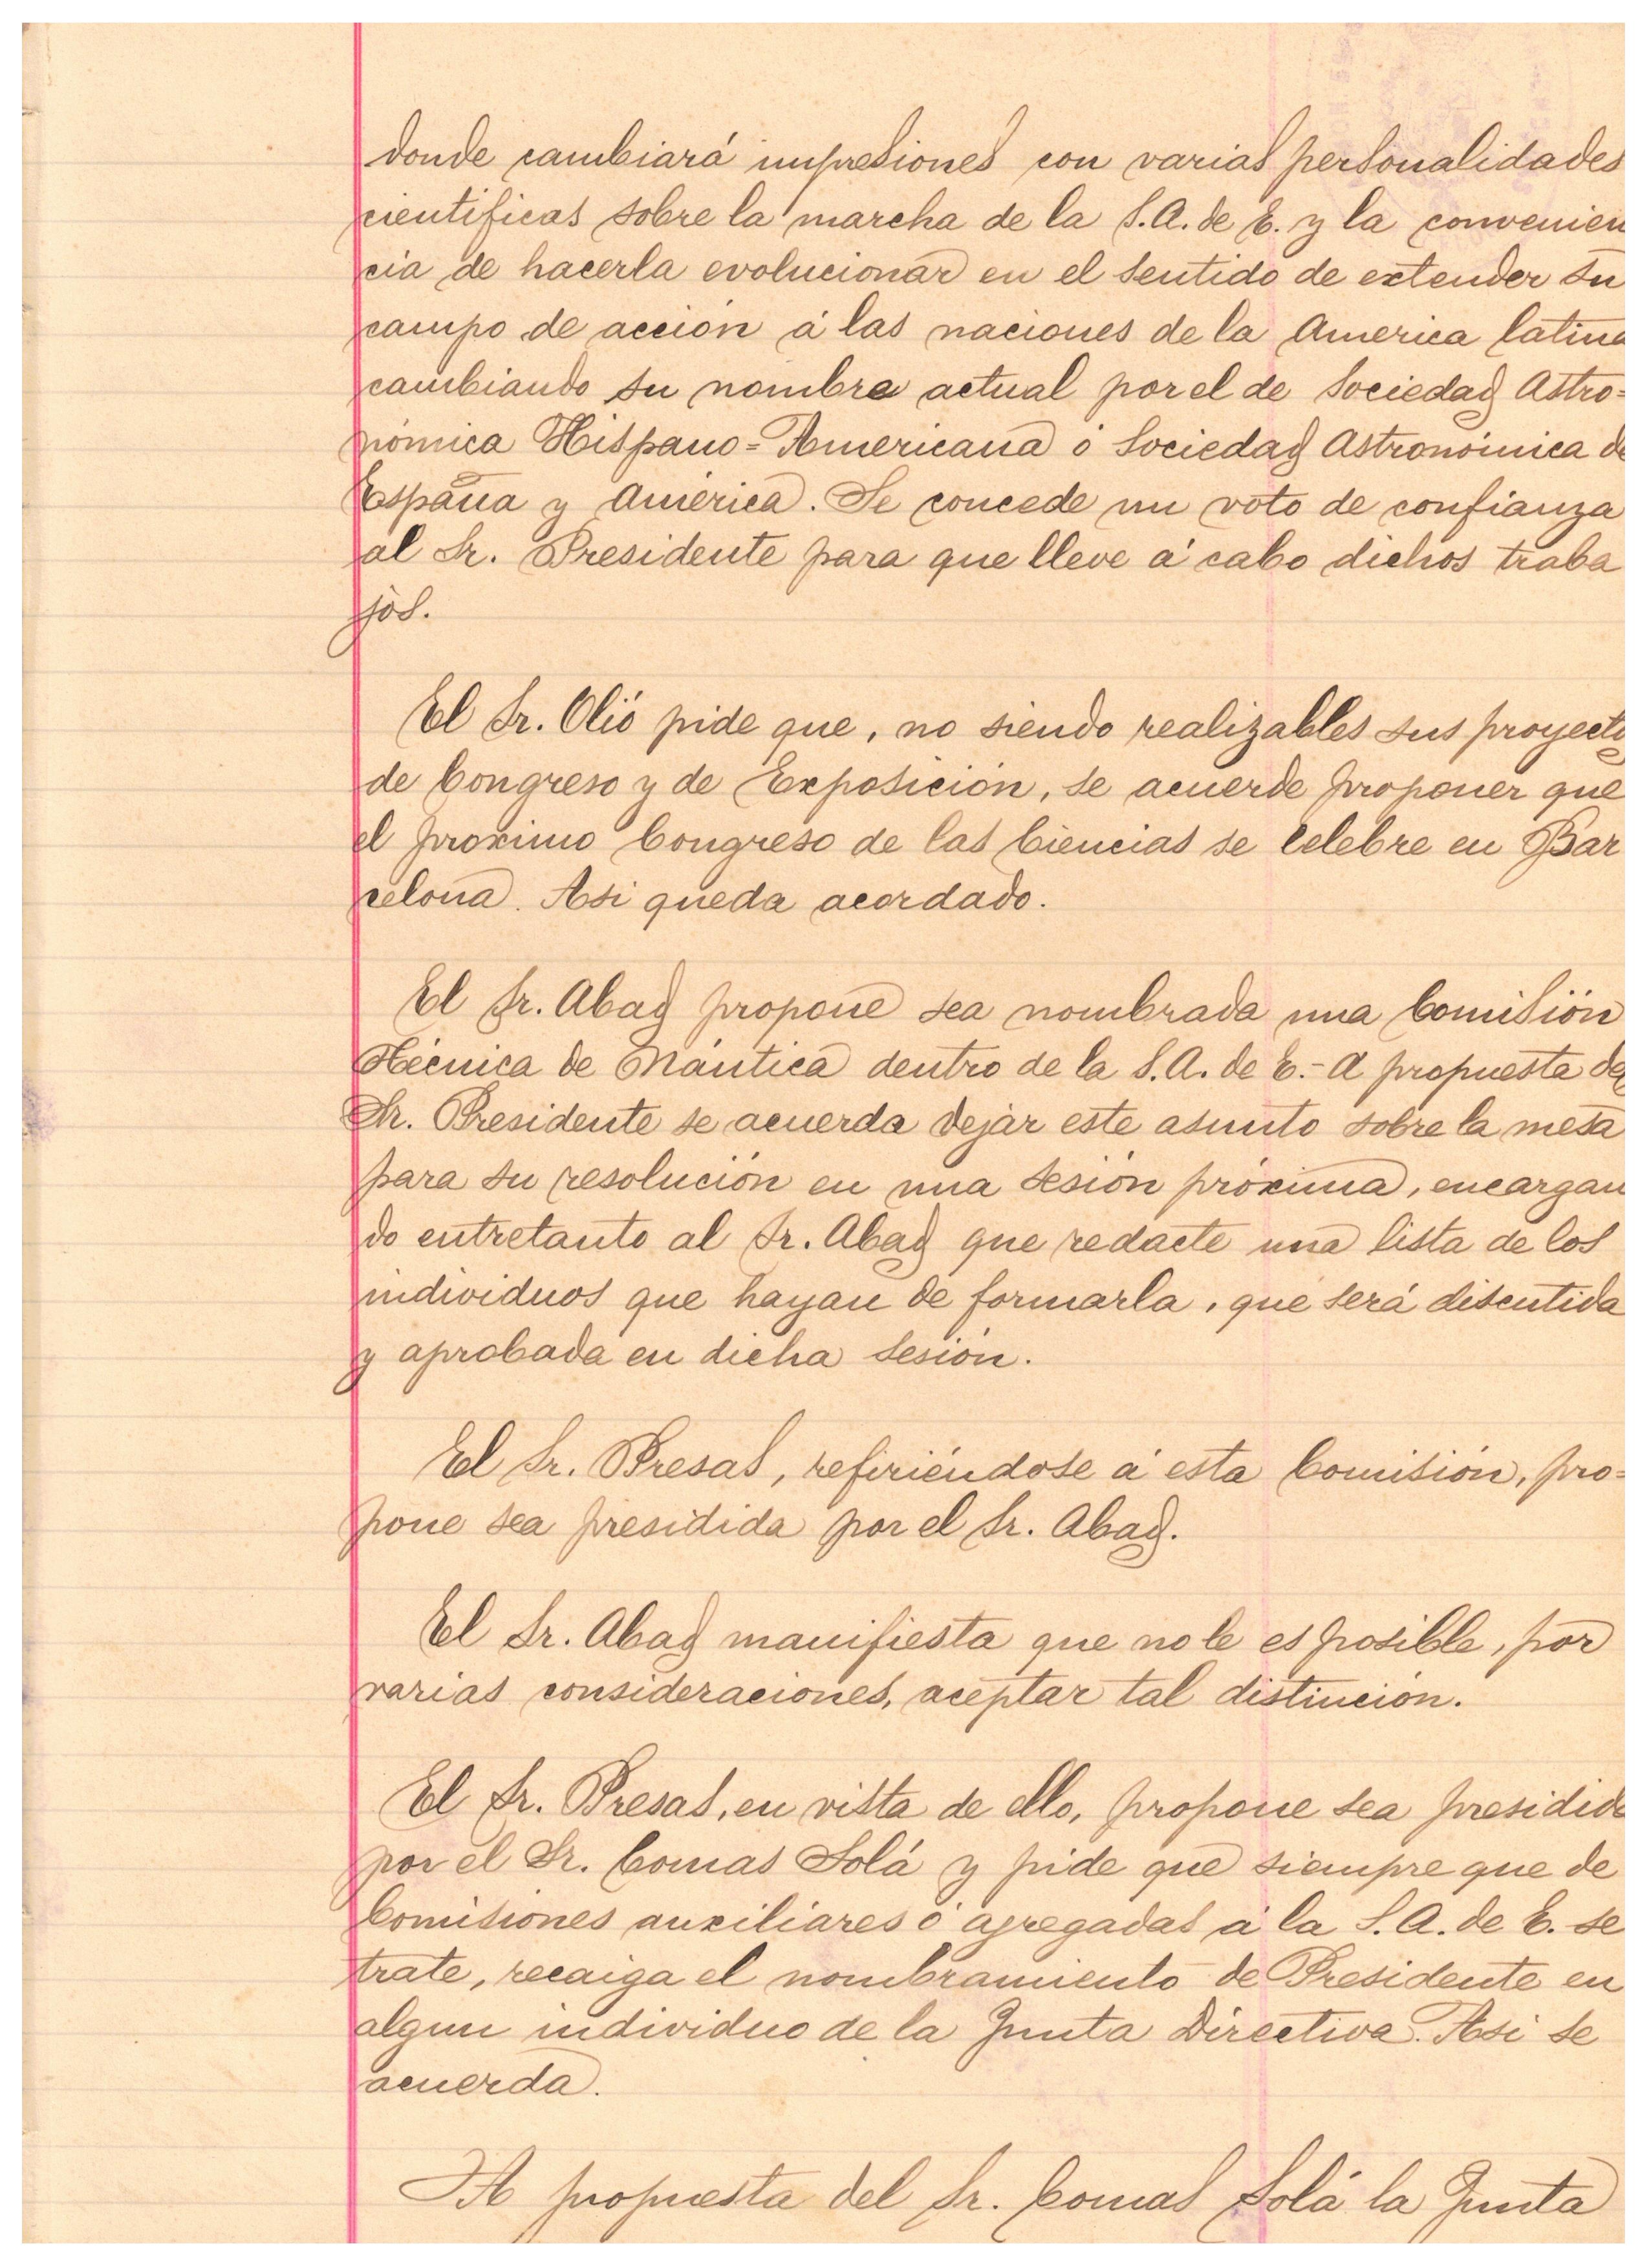 donde cambiará impresiones con varias personalidades
cientificas sobre la marcha de la S.A. de E. y la convenien
cia de hacerla evolucionar en el sentido de extender su
campo de acción á las naciones de la America latina
cambiando su nombre actual por el de Sociedad Astro=
nómica Hispano=Americana ó Sociedad Astronómica de
España y América. Se concede un voto de confianza
al Sr. Presidente para que lleve á cabo dichos traba
jos.
El Sr. Olió pide que, no siendo realizables sus proyectos
de Congreso y de Exposición, se acuerde proponer que
el proximo Congreso de las Ciencias se celebre en Bar
celona. Asi queda acordado.
El Sr. Abad propone sea nombrada una Comisión
Técnica de Náutica dentro de la S.A. de E.- A propuesta del
Sr. Presidente se acuerda dejar este asunto sobre la mesa
para su resolución en una sesión próxima, encargan
do entretanto al Sr. Abad que redacte una lista de los
individuos que hayan de formarla, que será discutida
y aprobada en dicha sesión.
El Sr. Presas, refiriéndose á esta Comisión, pro=
pone sea presidida por el Sr. Abad.
El Sr. Abad manifiesta que no le es posible, por
varias consideraciones, aceptar tal distinción.
El Sr. Presas, en vista de ello, propone sea presidida
por el Sr. Comas Solá y pide que siempre que de
Comisiones auxiliares ó agregadas á la S.A. de E. se
trate, recaiga el nombramiento de Presidente en
algun individuo de la Junta Directiva. Asi se
acuerda.
A propuesta del Sr. Comas Solá la Junta